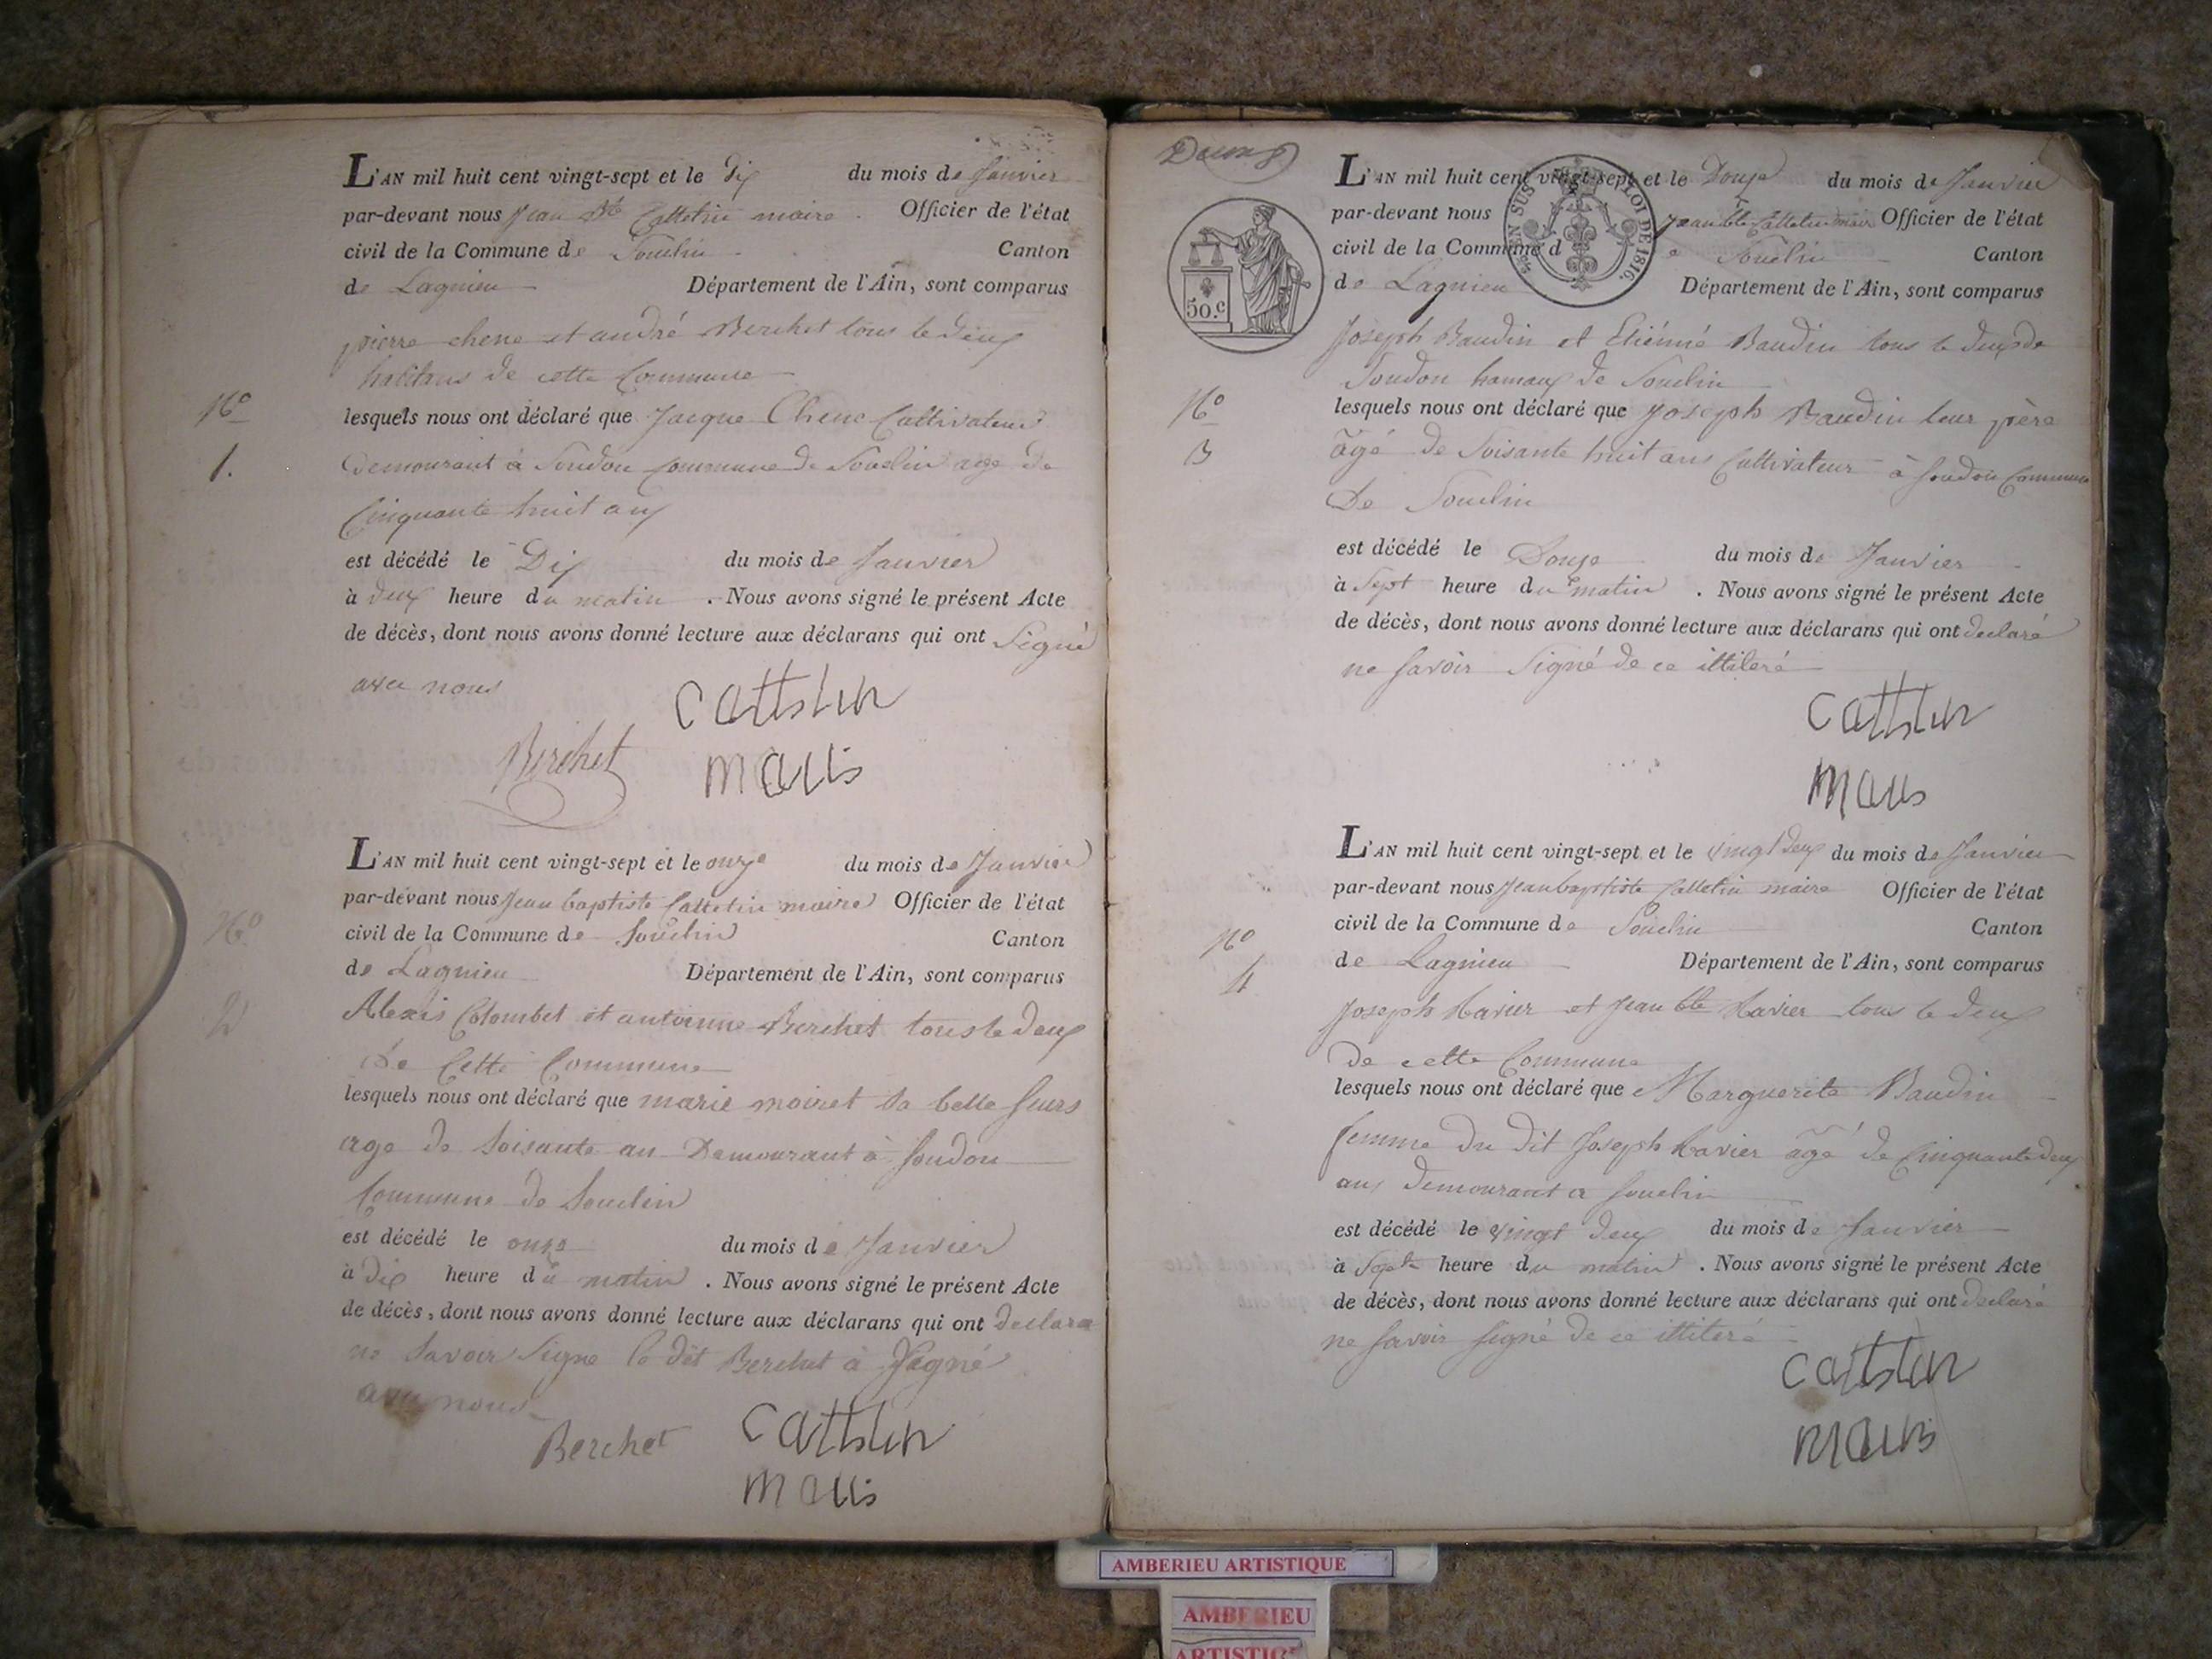 L'AN mil huit cent vingt-sept et le dix du mois de Janvier
par-devant nous Jean Bte Cattelin maire Officier de l'état
civil de la Commune de Souclin Canton
de Lagnieu Département de l'Ain, sont comparus
pierre chene et andré Berchet tous le deux
habitans de cette Commune
N°
1.
lesquels nous ont déclaré que Jacque Chene Cultivateur
Demourant à Soudon Commune de Souclin age de
Cinquante huit ans
est décédé le Dix du mois de Janvier
à deux heure du matin . Nous avons signé le présent Acte
de décès, dont nous avons donné lecture aux déclarans qui ont Signé
avec nous
Cattelin
Berchet
L'AN mil huit cent vingt-sept et le onze du mois de Janvier
par-devant nous Jean baptiste Cattelin maire Officier de l'état
civil de la Commune de Souclin Canton
de Lagnieu Département de l'Ain, sont comparus
N°
2
Alexis Colombet et antoinne Berchet tous le deux
de Cette Commune
lesquels nous ont déclaré que marie moiret sa belle seurs
age de Soisante an Demourant à Soudon
Commune de Souclin
est décédé le onze du mois de Janvier
à dix heure du matin . Nous avons signé le présent Acte
de décès, dont nous avons donné lecture aux déclarans qui ont declare
ne Savoir Signe le dit Berchet à Signé
avec nous
Berchet Cattelin
L'AN mil huit cent vingt-sept et le Douze du mois de Janvier
par-devant nous Jean bte Cattelin maire Officier de l'état
civil de la Commune de Souclin Canton
de Lagnieu Département de l'Ain, sont comparus
EN SUS LOI DE 1816.
50.c
Joseph Baudin et Etiénné Baudin tous le deux de
Soudon hamaux de Souclin
N°
3
lesquels nous ont déclaré que Joseph Baudin leur père
âgé de Soisante huit ans Cultivateur à Soudon Commune
De Souclin
est décédé le Douze du mois de Janvier
à Sept heure du matin . Nous avons signé le présent Acte
de décès, dont nous avons donné lecture aux déclarans qui ont declaré
ne Savoir Signé de ce illiteré
Cattelin
L'AN mil huit cent vingt-sept et le vingt deux du mois de Janvier
par-devant nous Jean baptiste Cattelin maire Officier de l'état
civil de la Commune de Souclin Canton
de Lagnieu Département de l'Ain, sont comparus
N°
4
Joseph et Jean bte tous le deux
de cette Commune
lesquels nous ont déclaré que Marguerite Baudin
femme du dit Joseph âgé de Cinquante deux
ans Demourant a Souclin
est décédé le vingt deux du mois de Janvier
à Sept heure du matin . Nous avons signé le présent Acte
de décès, dont nous avons donné lecture aux déclarans qui ont declaré
ne Savoir Signé de ce illiteré
Cattelin
AMBERIEU ARTISTIQUE
AMBERIEU